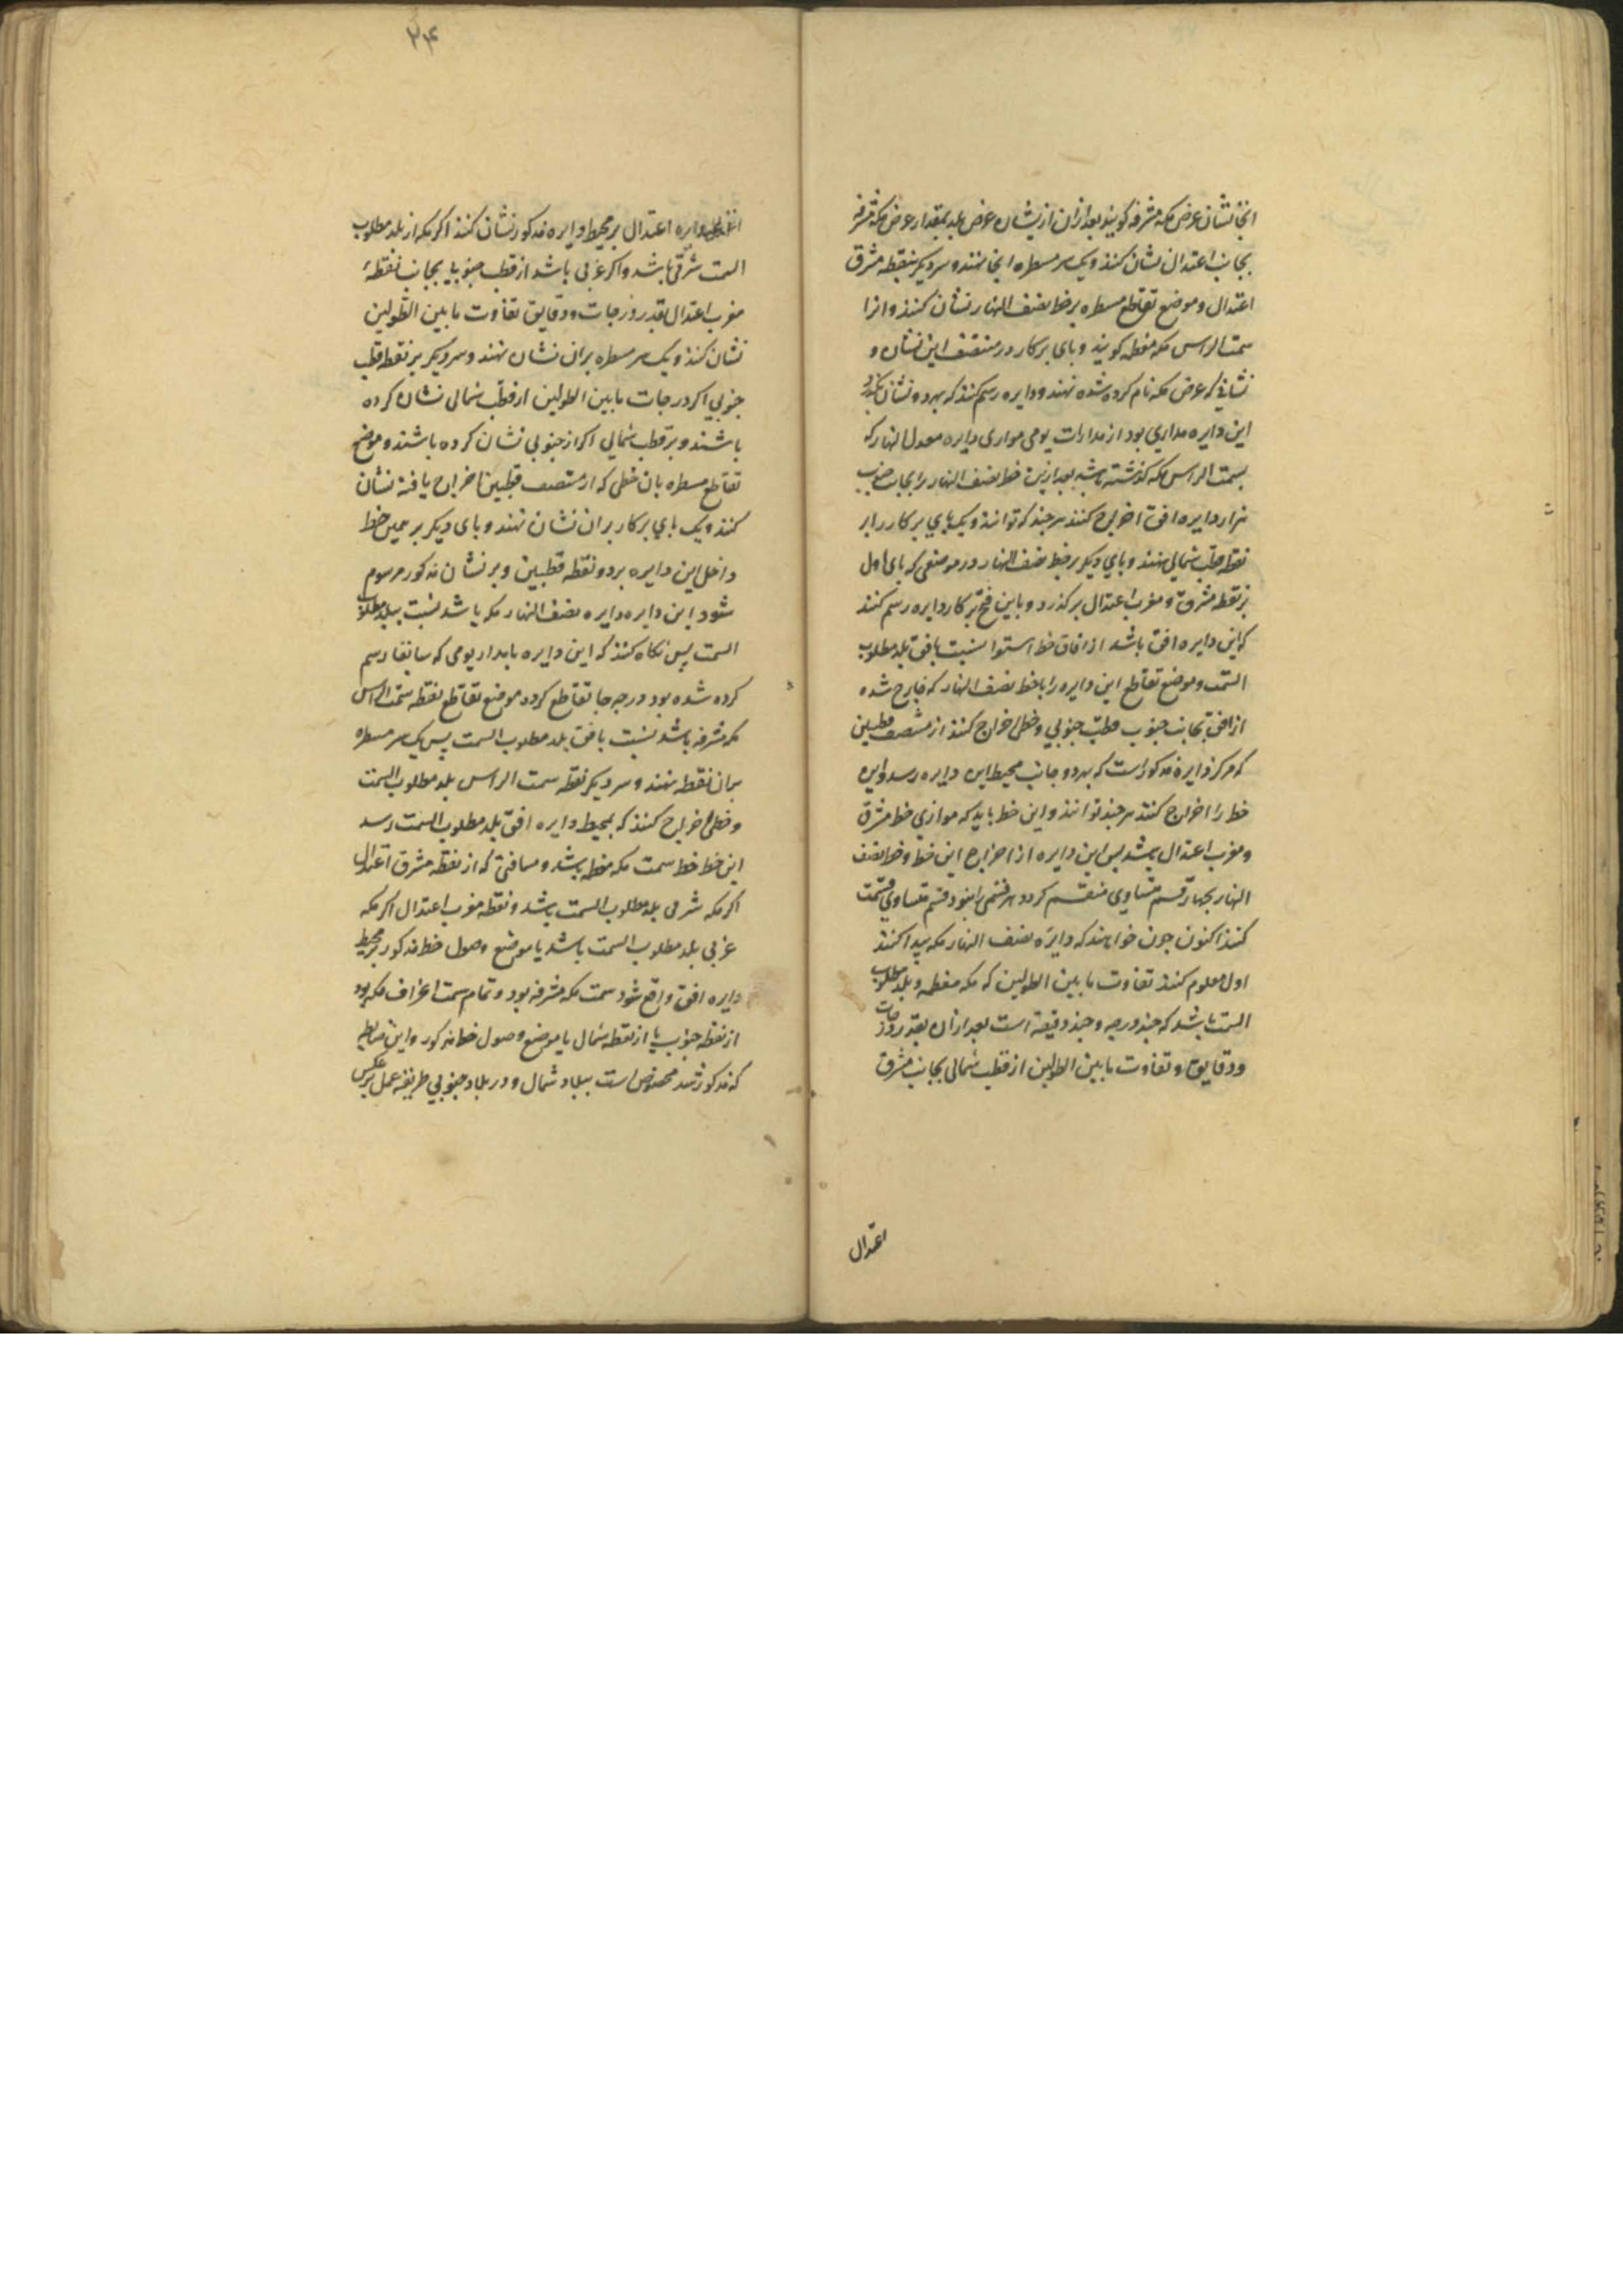 انجا نشان عرض مکه مشرفه کویند بعد ازان از نشان عرض بلد بمقدار عرض مکه مشرفه
بجانب اعتدال نشان کنند و یک سر مسطره انجا نهند و سر دیکر بنقطه مشرق
اعتدال و موضع تقاطع مسطره بر خط نصف النهار نشان کنند و انرا
سمت الراس مکه معظمه کویند و پای پرکار در منتصف این نشان و
نشانی که عرض مکه نام کرده شده نهند و دایره رسم کنند که بهر دو نشان بکذرد
این دایره مداری بود از مدارات یومی موازی دایره معدل النهار که
بسمت الراس مکه کذشته باشد بعد ازین خط نصف النهار را بجانب جنوب
از دایره افق اخراج کنند هر چند که توانند و یک پای پرکار را بر
نقطه قطب شمالی نهند و پای دیکر بر خط نصف النهار در موضعی که پای اول
بر نقطه مشرق و مغرب اعتدال بر کذرد و باین فتح پرکار دایره رسم کنند
که این دایره افق باشد از افاق خط استوا نسبت بافق بلد مطلوب
السمت و موضع تقاطع این دایره را با خط نصف النهار که خارج شده
از افق بجانب جنوب قطب جنوبی و خطی اخراج کنند از منتصف قطبین
که مرکز دایره مذکور است که بهر دو جانب محیط این دایره رسد و این
خط را اخراج کنند هر چند توانند و این خط باید که موازی خط مشرق
و مغرب اعتدال باشد پس این دایره از اخراج این خط و خط نصف
النهار بچهار قسم متساوی منقسم کردد هر قسمی را بنود قسم متساوی قسمت
کنند اکنون چون خواهند که دایره نصف النهار مکه پیدا کنند
اول معلوم کنند تفاوت ما بین الطولین که مکه معظمه و بلد مطلوب
السمت باشد که چند درجه و چند دقیقه است بعد ازان بقدر درجات
و دقایق و تفاوت ما بین الطولین از قطب شمالی بجانب مشرق
اعتدال
۲۴
دایره اعتدال بر محیط دایره مذکور نشان کنند اکر مکه از بلد مطلوب
السمت شرقی باشد و اکر غربی باشد از قطب جنوبی بجانب نقطه
مغرب اعتدال بقدر درجات و دقایق تفاوت ما بین الطولین
نشان کنند و یک سر مسطره بران نشان نهند و سر دیکر بر نقطه قطب
جنوبی اکر درجات ما بین الطولین از قطب شمالی نشان کرده
باشند و بر قطب شمالی اکر از جنوبی نشان کرده باشند و موضع
تقاطع مسطره بان خطی که از منتصف قطبین اخراج یافته نشان
کنند و یک پای پرکار بران نشان نهند و پای دیکر بر همین خط
داخل این دایره بر دو نقطه قطبین و بر نشان مذکور مرسوم
شود این دایره دایره نصف النهار مکه باشد نسبت ببلد مطلوب
السمت پس نکاه کنند که این دایره با مدار یومی که سابقا رسم
کرده شده بود در چه جا تقاطع کردد موضع تقاطع نقطه سمت الراس
مکه مشرفه باشد نسبت بافق بلد مطلوب السمت پس یک سر مسطره
بران نقطه نهند و سر دیکر نقطه سمت الراس بلد مطلوب السمت
و خطی اخراج کنند که بمحیط دایره افق بلد مطلوب السمت رسد
این خط خط سمت مکه معظمه باشد و مسافتی که از نقطه مشرق اعتدال
اکر مکه شرقی بلد مطلوب السمت باشد و نقطه مغرب اعتدال اکر مکه
غربی بلد مطلوب السمت باشد یا موضع وصول خط مذکور بر محیط
دایره افق واقع شود سمت مکه مشرفه بود و تمام سمت انحراف مکه بود
از نقطه جنوب یا از نقطه شمال یا موضع وصول خط مذکور و این ضابطه
که مذکور شد مخصوص است ببلاد شمال و در بلاد جنوبی طریقه عمل برعکس